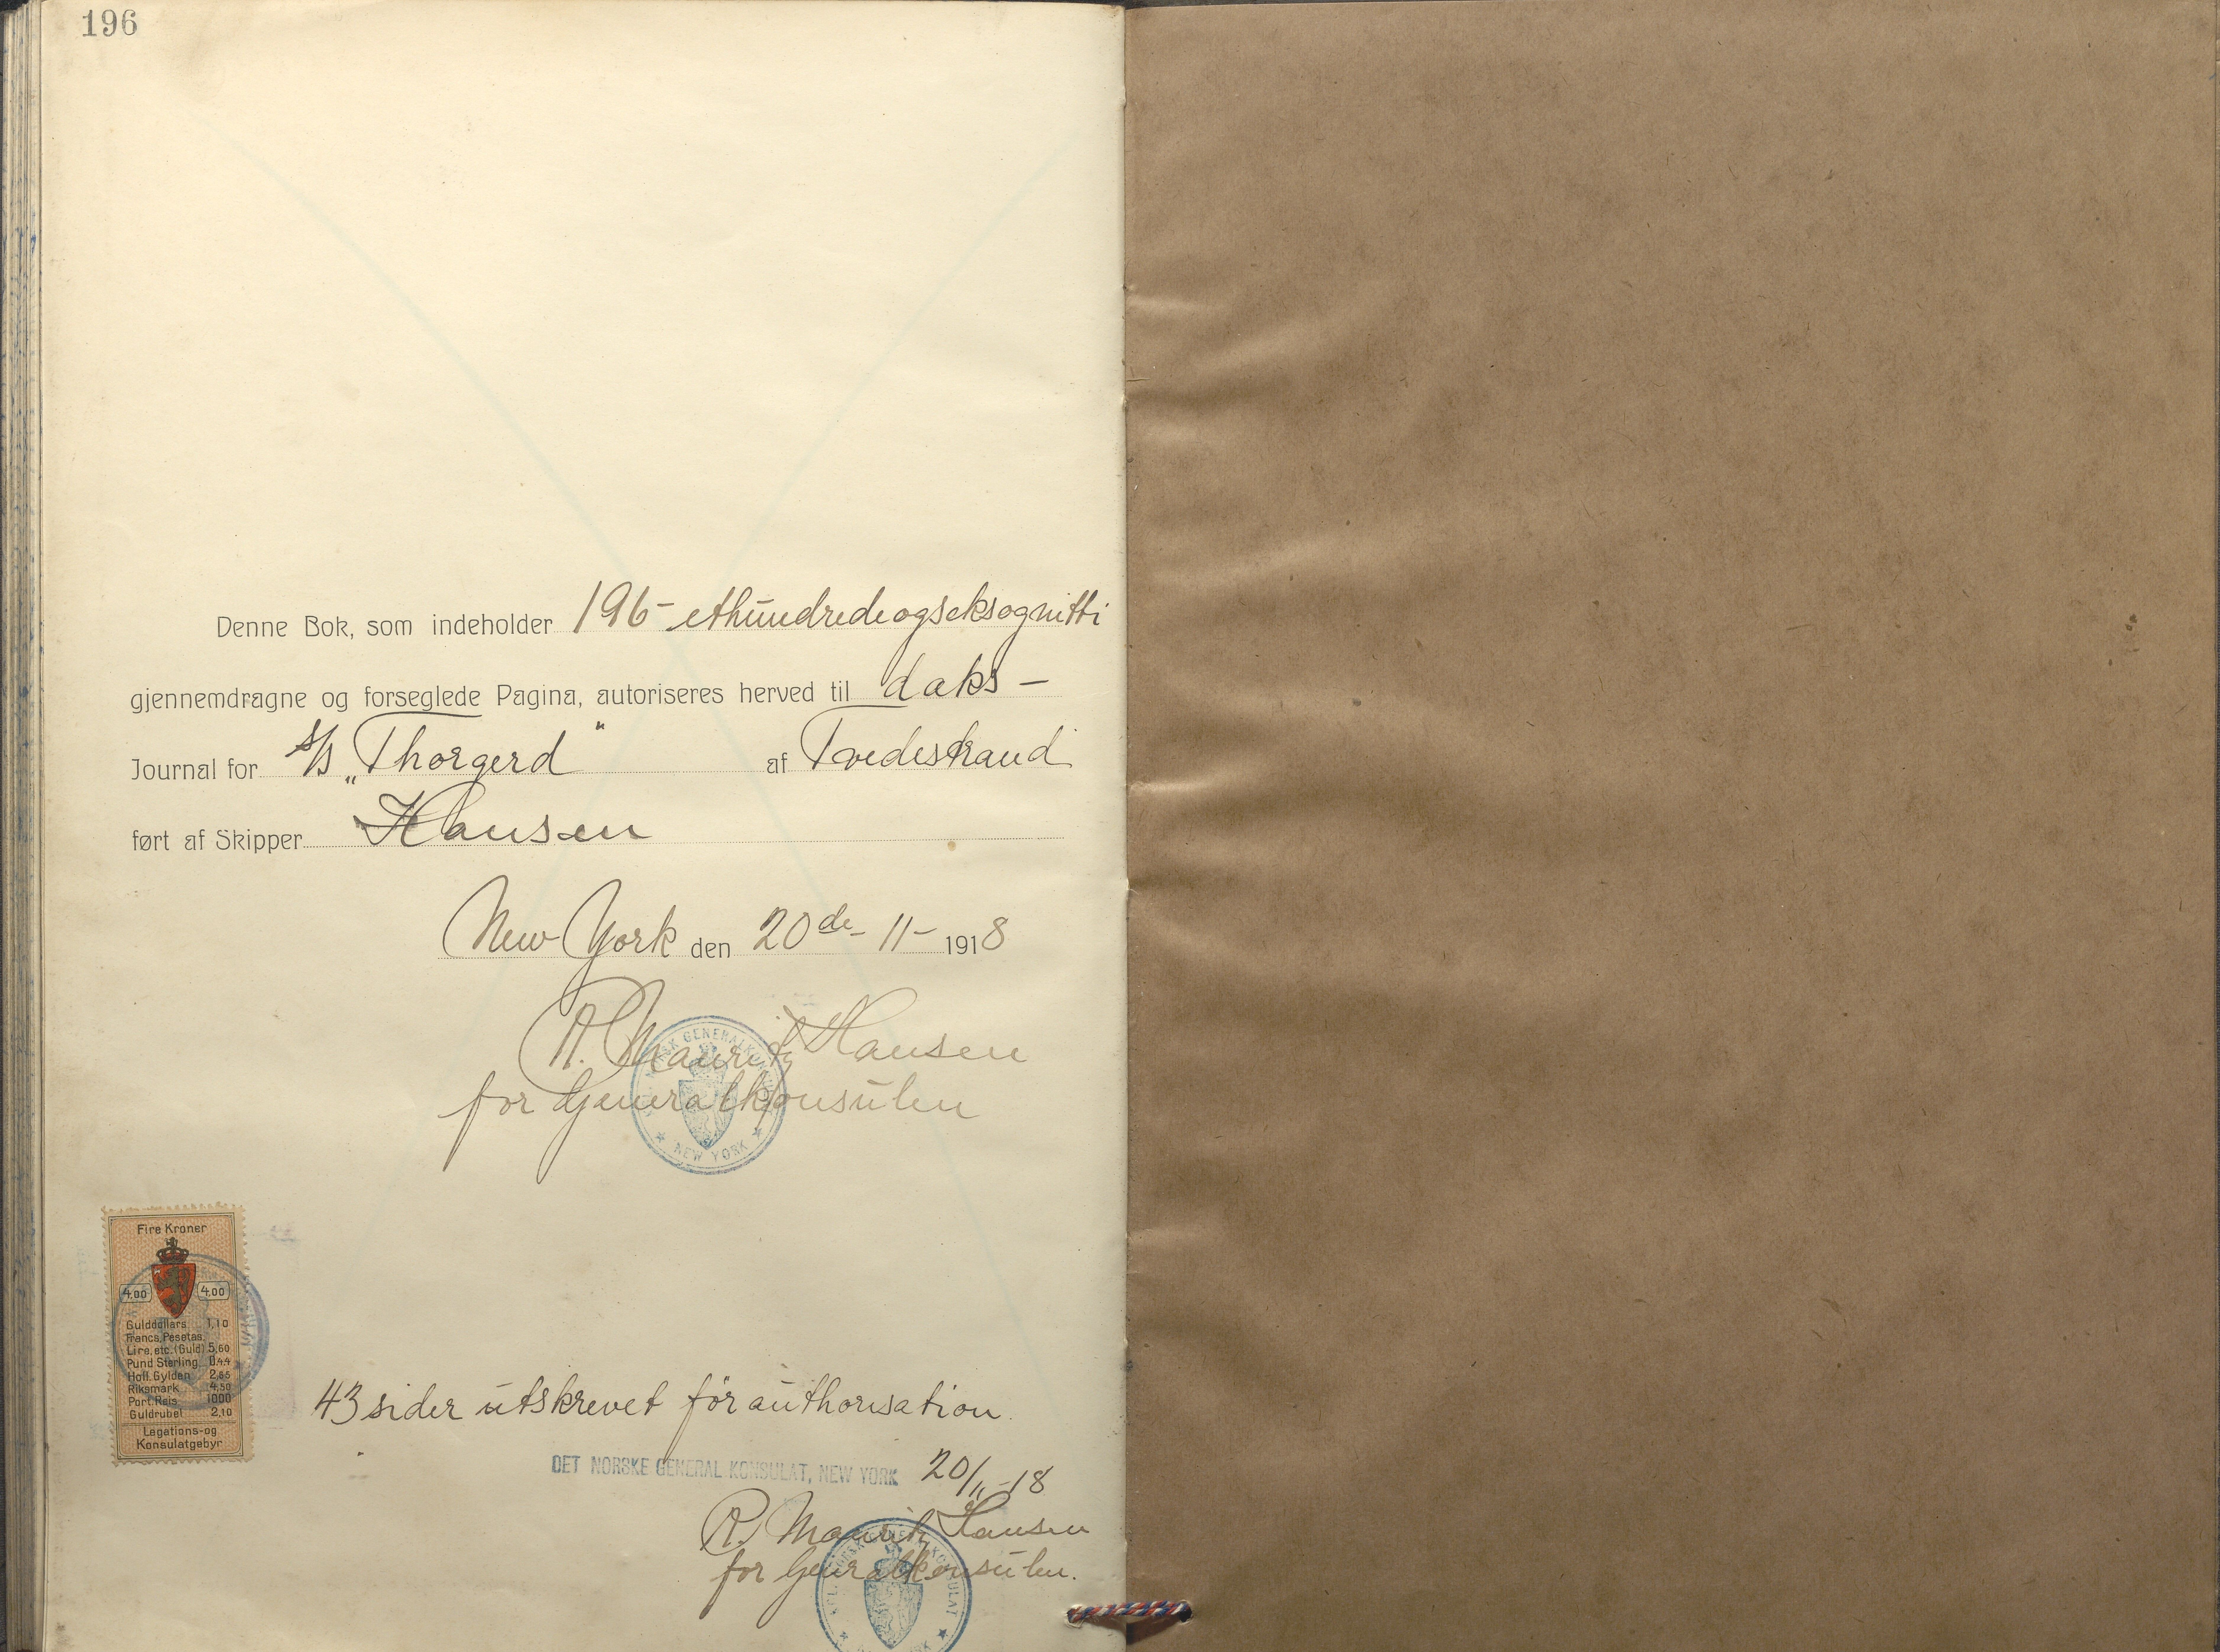 196
Denne Bok, som indeholder 196 - ethundredeogseksognitti
gjennemdragne og forseglede Pagina, autoriseres herved til daks-
Journal for s/s „Thorgerd“ af Tvedestrand
ført af Skipper Hansen
New York den 20de - 11 - 1918
R. Mauritz Hansen
for Generalkonsulen
NEW YORK
Fire Kroner
4.00 4.00
Gulddollars 1,10
Francs, Pesetas,
Lire, etc. (Guld) 5,60
Pund Sterling 0.4.4
Holl. Gylden 2,65
Riksmark 4,50
Port. Reis 1000
Guldrubel 2,10
Legations-og
Konsulatgebyr
43 sider utskrevet för authorisation.
DET NORSKE GENERAL KONSULAT, NEW YORK 20/11 - 18
R. Mauritz Hansen
for Generalkonsulen.